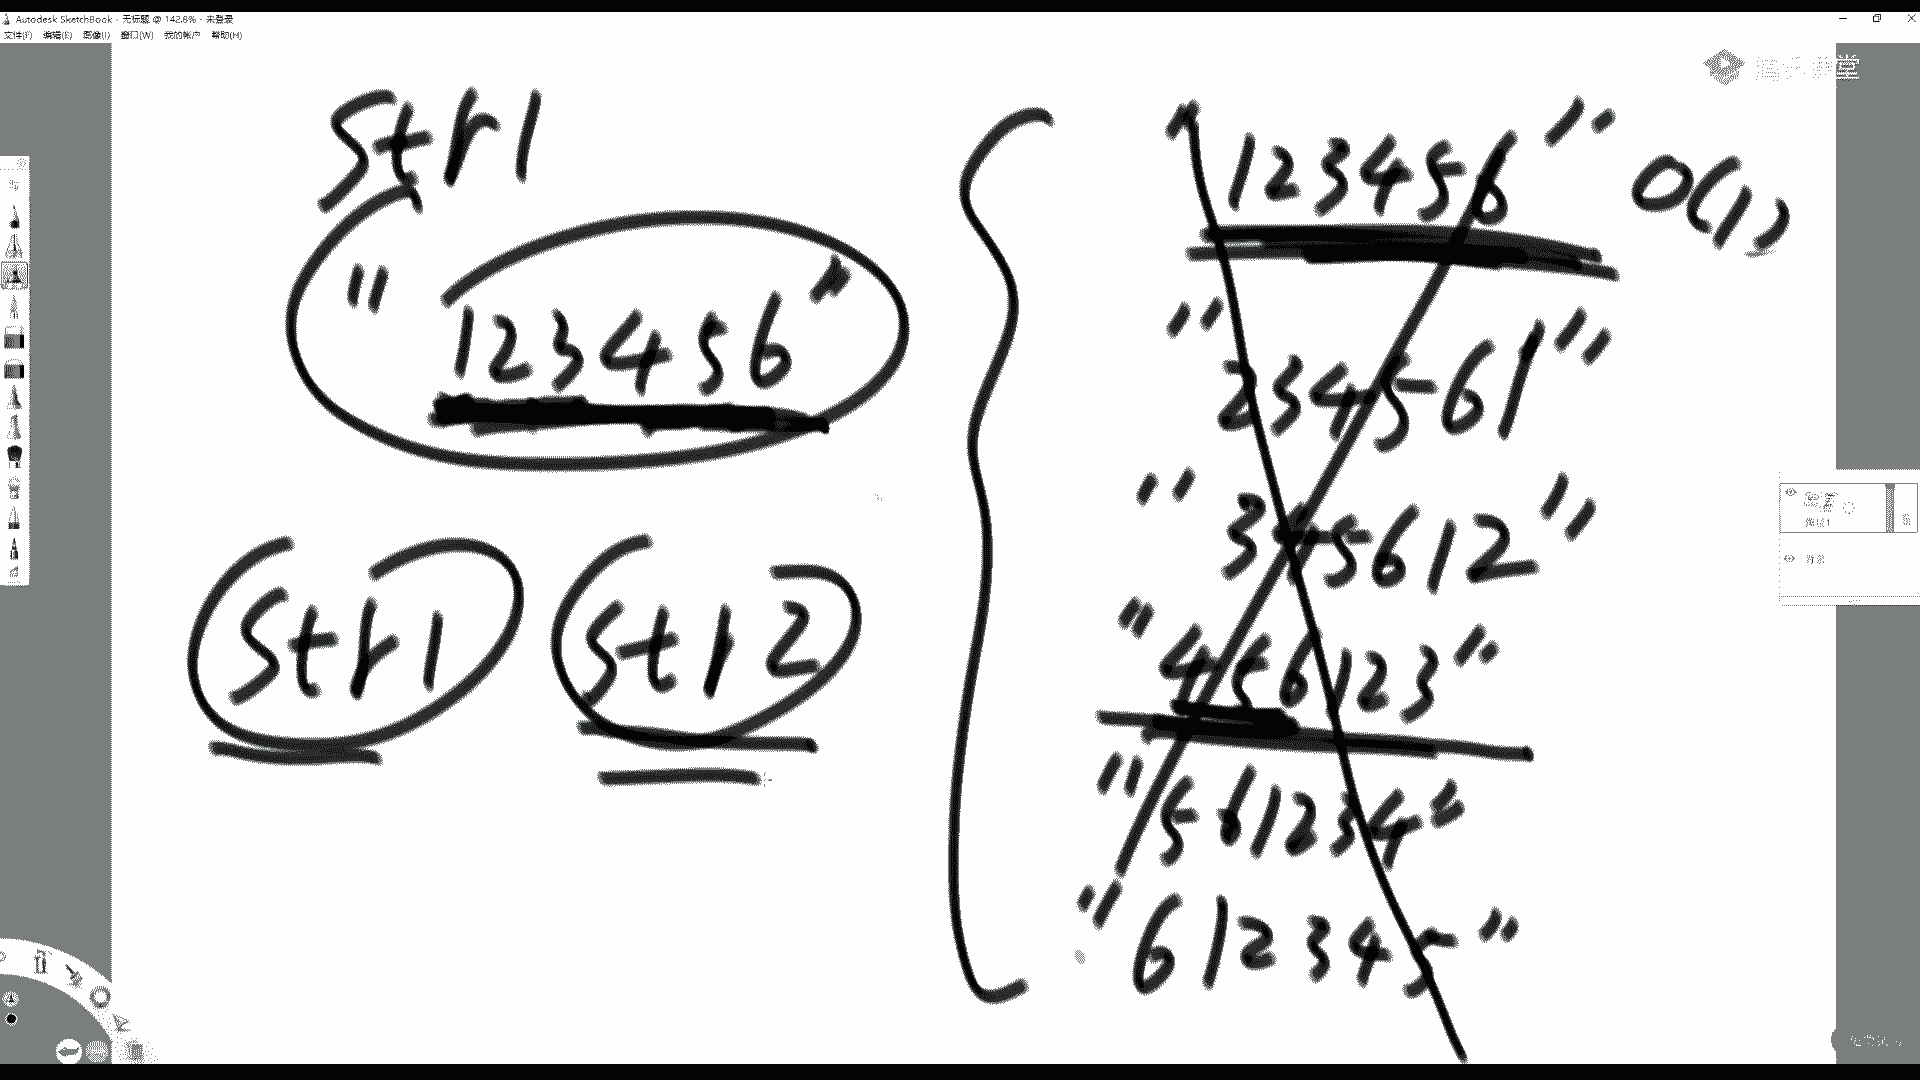 Autodesk SketchBook - 无标题 @ 142.8% - 未登录
文件(F) 编辑(E) 图像(I) 窗口(W) 我的帐户 帮助(H)
str1
"123456"
str1 str2
"123456" O(1)
"234561"
"345612"
"456123"
"561234"
"612345"